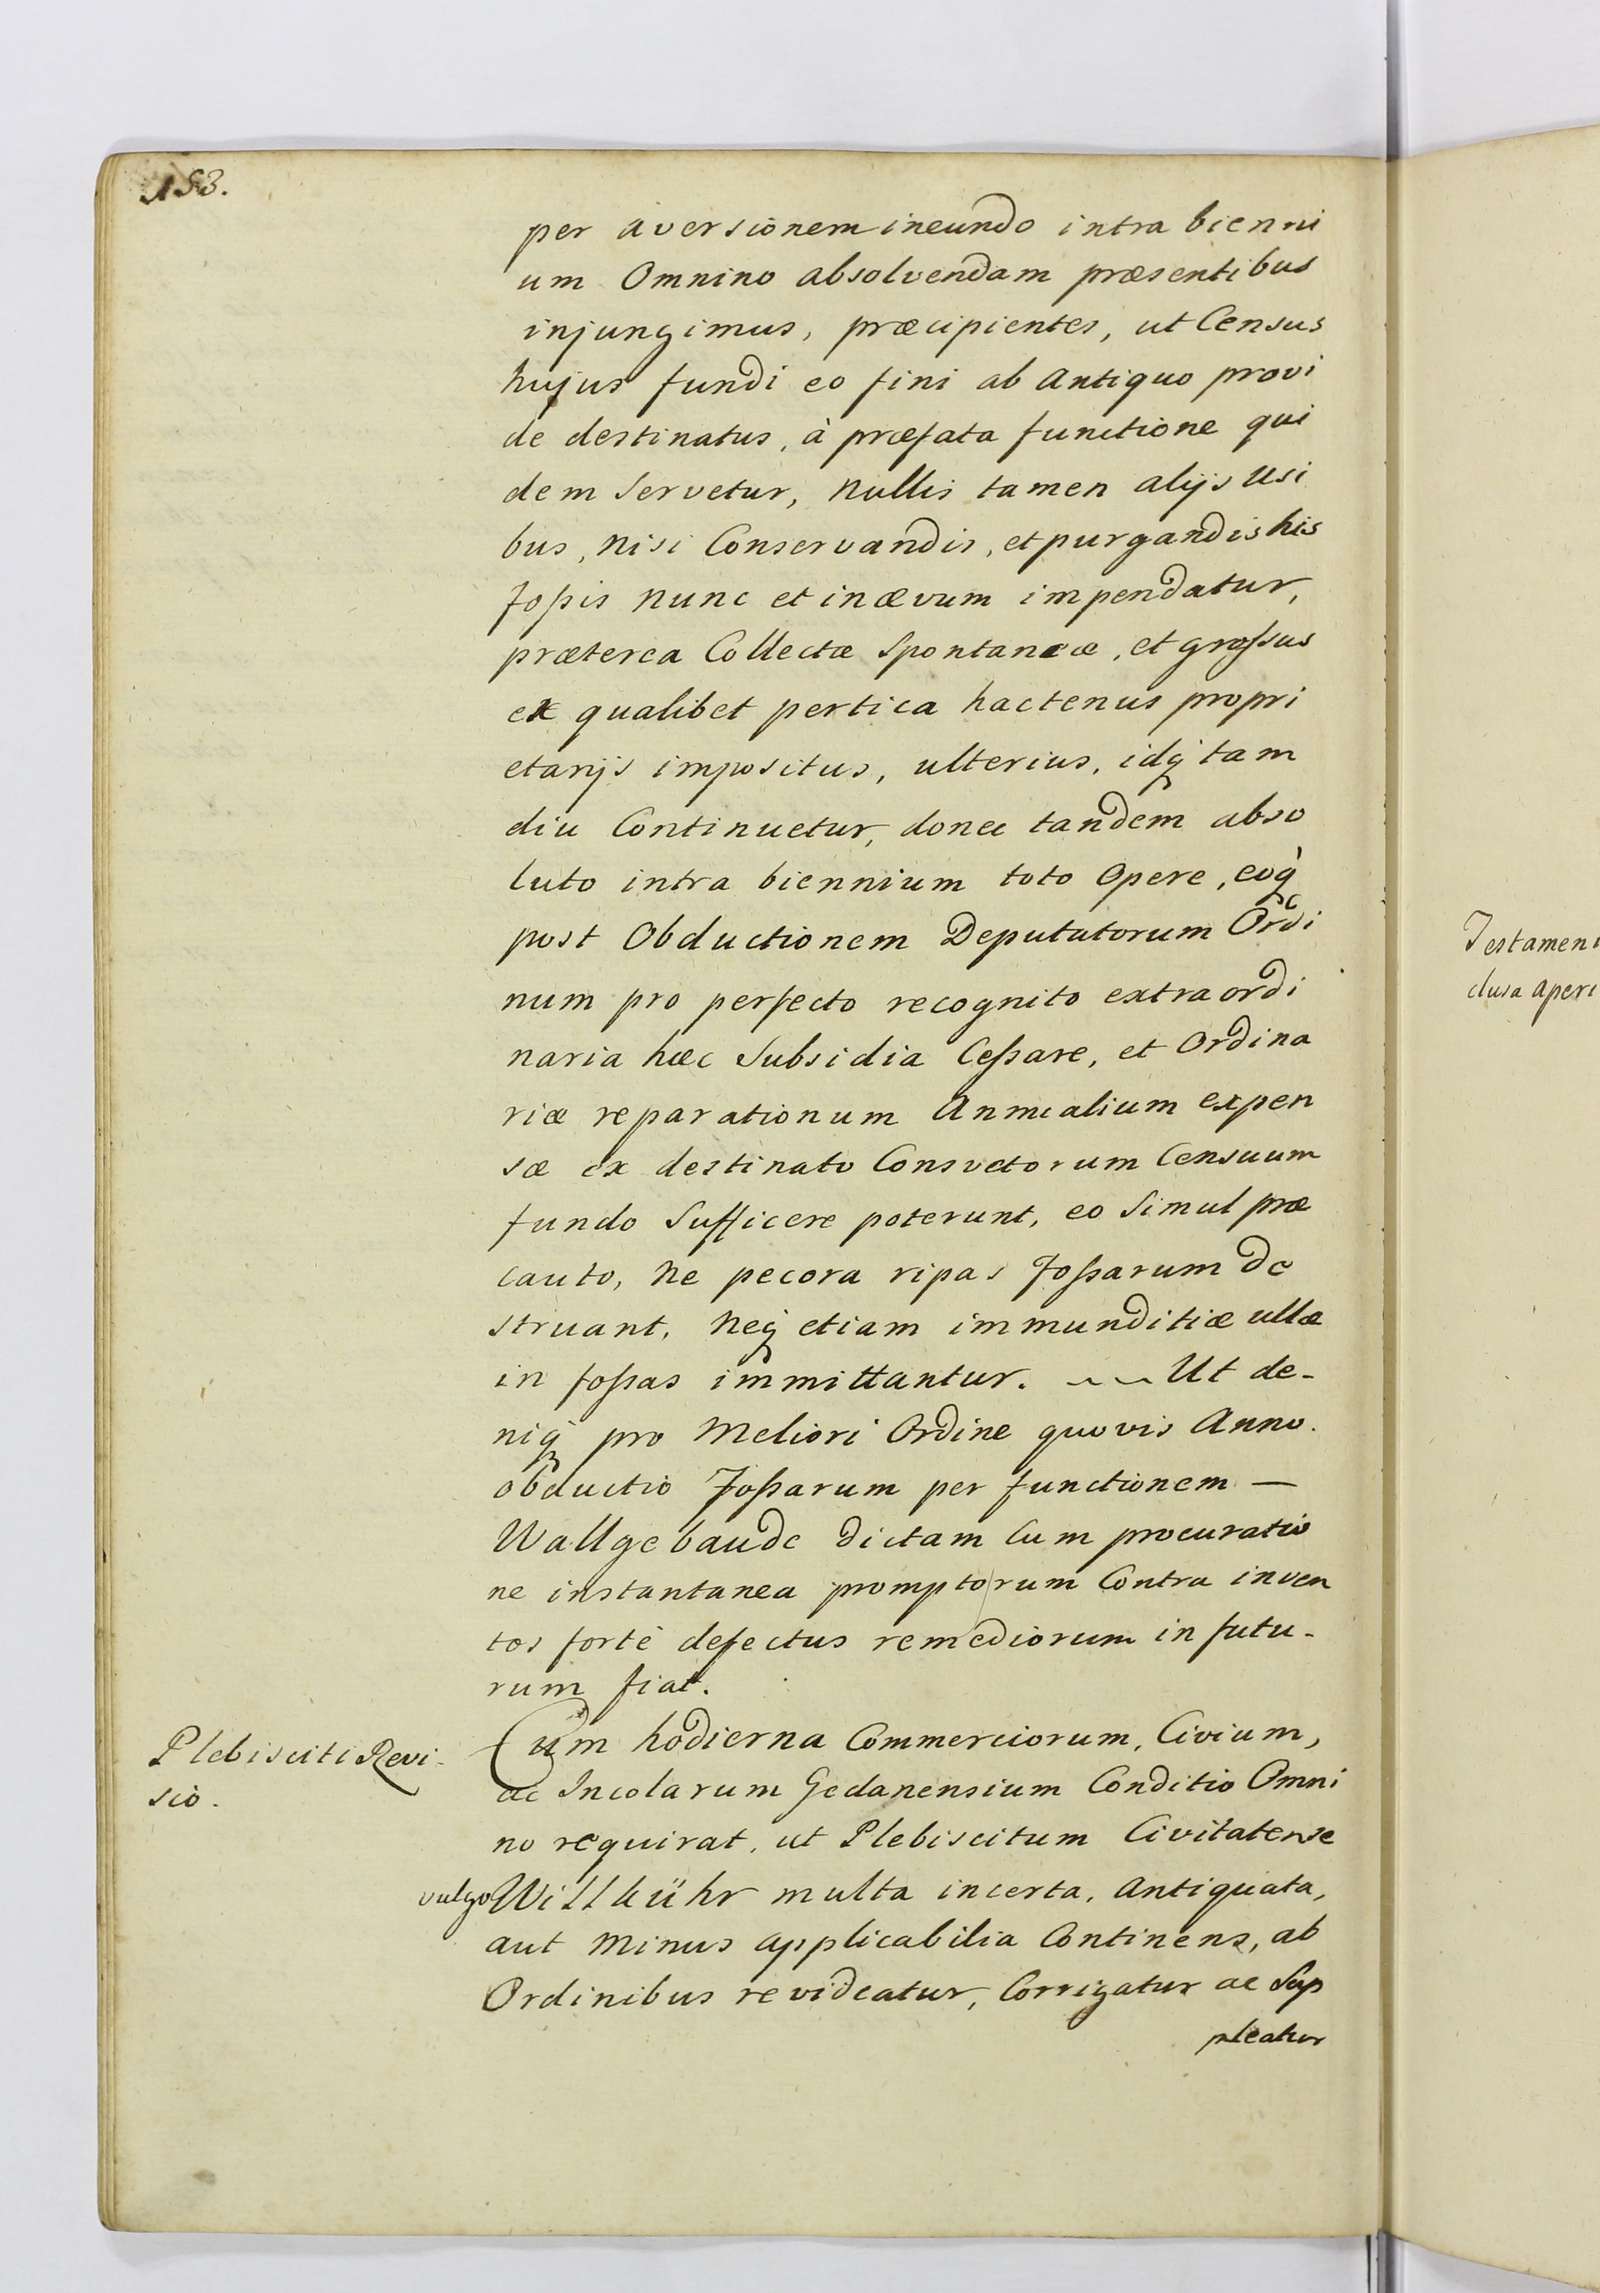 153.
per aversionem ineundo intra bienni
um Omnino absolvendam præsentibus
injungimus, præcipientes, ut Census
hujus fundi eo fini ab Antiquo provi
de destinatus, à præfata functione qui
dem Servetur, Nullis tamen alijs Usi
bus, Nisi Conservandis, et purgandis his
Foßis Nunc et in ævum impendatur,
præterea Collectæ Spontaneæ, et großus
ex qualibet pertica hactenus propri
etarijs impositus, ulterius, idq̃ tam
diu Continuetur, donec tandem abso
luto intra biennium toto Opere, eoq̃
post Obductionem Deputatorum Ordi
num pro perfecto recognito extraordi
naria hæc Subsidia Ceßare, et Ordina
riæ reparationum Annualium expen
sæ ex destinato Consvetorum Censuum
fundo Sufficere poterunt, eo Simul præ
cauto, Ne pecora ripas Foßarum De
struant, Neq̃ etiam immunditiæ ullæ
in foßas immittantur. ~~ Ut de-
niq̃ pro Meliori Ordine quovis Anno.
obductio Foßarum per functionem —
Wallgebaude Dictam Cum procuratio
ne instantanea promptorum Contra inven
tos fortè defectus remediorum in futu-
rum fiat.
Plebisciti Revi-
sio.
Cum hodierna Commerciorum, Civium,
ac Incolarum Gedanensium Conditio Omni
no requirat, ut Plebiscitum Civitatense
vulgo Willkühr multa incerta, Antiquata,
aut Minus applicabilia Continens, ab
Ordinibus revideatur, Corrigatur ac Sup
pleatur
Testamen
clusa aper